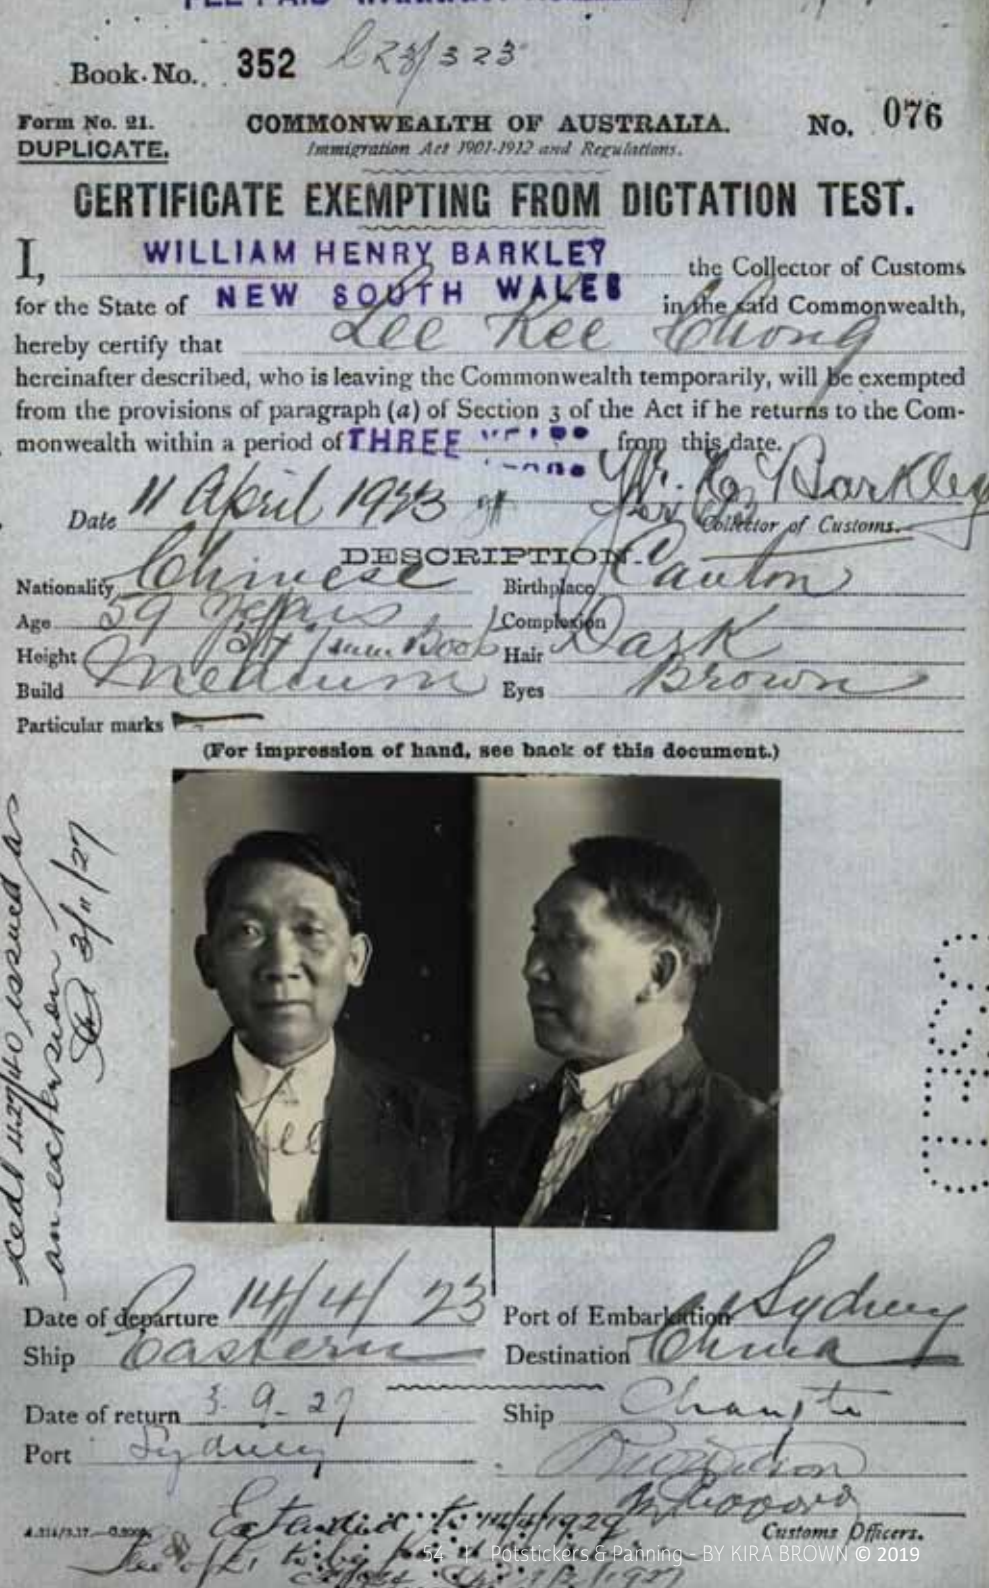 FEE PAID
Book No. 352 C23/323
Form No. 21. COMMONWEALTH OF AUSTRALIA. No. 076
DUPLICATE. Immigration Act 1901-1912 and Regulations.
CERTIFICATE EXEMPTING FROM DICTATION TEST.
I, WILLIAM HENRY BARKLEY the Collector of Customs
for the State of NEW SOUTH WALES in the said Commonwealth,
hereby certify that Lee Kee Chong
hereinafter described, who is leaving the Commonwealth temporarily, will be exempted
from the provisions of paragraph (a) of Section 3 of the Act if he returns to the Com-
monwealth within a period of THREE YEARS from this date.
W. H. Barkley
Date 11 April 1923 Collector of Customs.
DESCRIPTION.
Nationality Chinese Birthplace Canton
Age 59 years Complexion
Height Hair Dark
Build Medium Eyes Brown
Particular marks
(For impression of hand, see back of this document.)
cedt 427/40 issued as
an extension
3/11/27
Date of departure 14/4/23 Port of Embarkation Sydney
Ship Eastern Destination China
Date of return 3-9-27 Ship Changte
Port Sydney
Extended to 14/4/1929
Customs Officers.
54 | Potstickers & Panning - BY KIRA BROWN © 2019